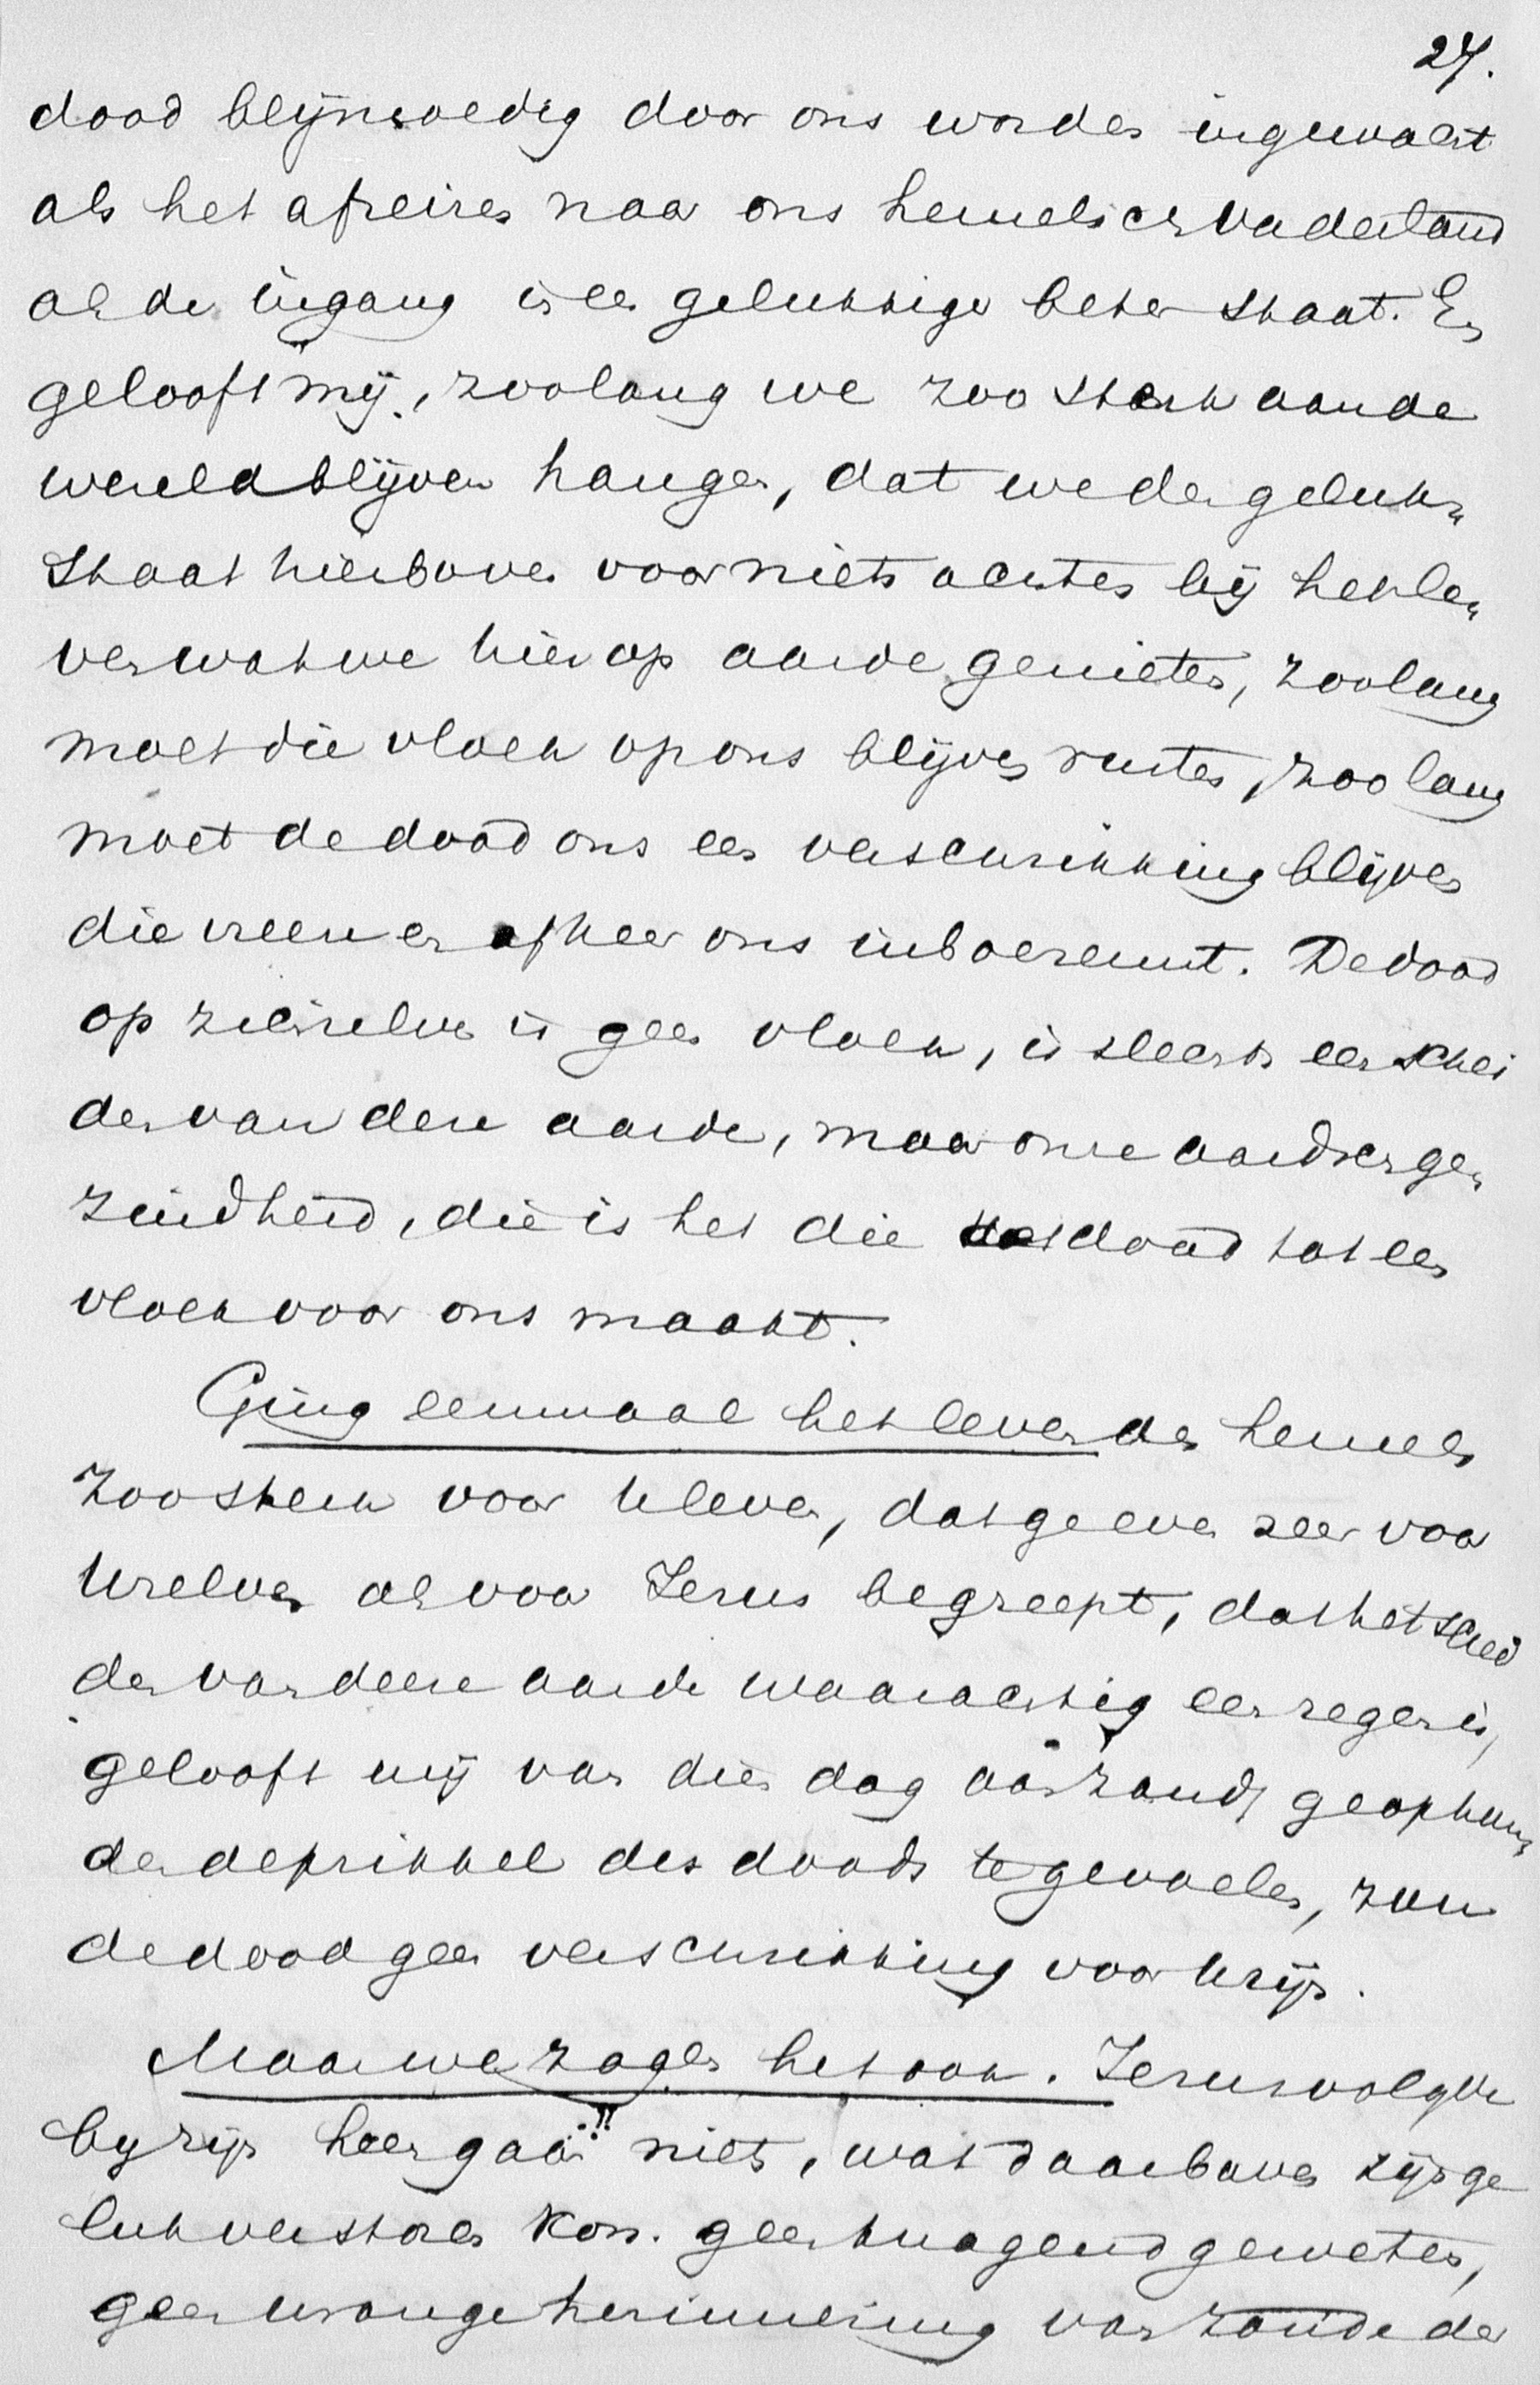 27.
dood blijmoedig door ons worden ingewacht
als het afreizen naar ons hemelsch vaderland
als de ingang in een gelukkiger beter staat. En
gelooft mij, zoolang we zoo sterk aan de
wereld blijven hangen, dat we den geluk
staat hierboven voor niets achten bij het le
ven wat we hier op aarde genieten, zoolang
moet die vloek op ons blijven rusten, zoolang
moet de dood ons een verschrikking blijven
die vrees en afkeer ons inboezemt. De dood
op zichzelve is geen vloek, is slechts een schei
den van deze aarde, maar onze aardschge
zindheid, die is het die den dood tot een
vloek voor ons maakt.
Ging eenmaal het leven des hemels
zoo sterk voor U leven, dat ge even zeer voor
Uzelven als voor Jezus begreept, dat het schei
den van deze aarde waarachtig een zegen is,
gelooft mij van dien dag aan zoudt ge ophou
den de prikkel des doods te gevoelen, zou
de dood geen verschrikking voor U zijn.
Maar we zagen het ook. Jezus volgde
bij zijn heengaan niets, wat daarboven zijn ge
luk verstoren kon. geen knagend geweten,
geen wrange herinnering van zonde der